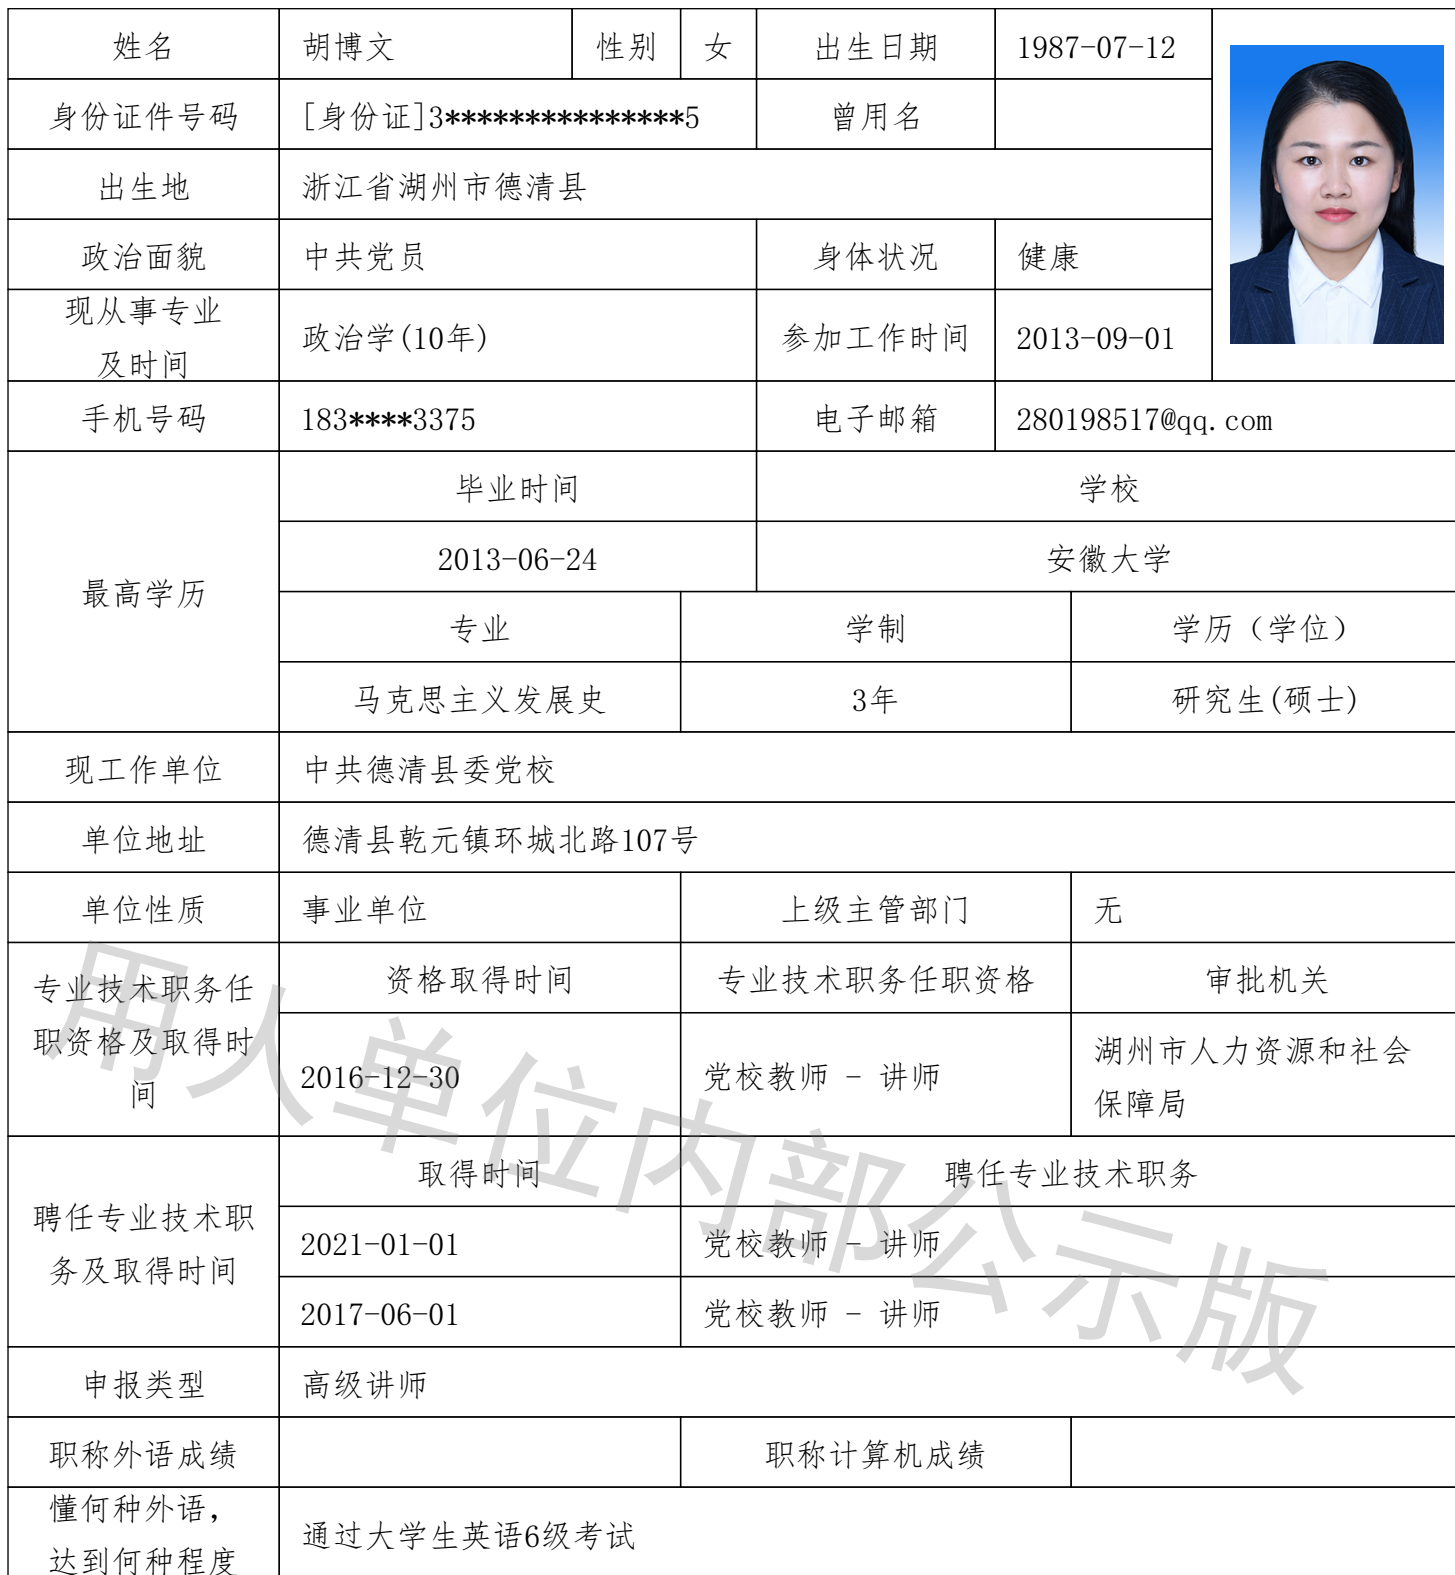 姓名 胡博文 性别 女 出生日期 1987-07-12
身份证件号码 [身份证]3***************5 曾用名
出生地 浙江省湖州市德清县
政治面貌 中共党员 身体状况 健康
现从事专业
及时间 政治学(10年) 参加工作时间 2013-09-01
手机号码 183****3375 电子邮箱 280198517@qq.com
最高学历
毕业时间 学校
2013-06-24 安徽大学
专业 学制 学历（学位）
马克思主义发展史 3年 研究生(硕士)
现工作单位 中共德清县委党校
单位地址 德清县乾元镇环城北路107号
单位性质 事业单位 上级主管部门 无
专业技术职务任
职资格及取得时
间
资格取得时间 专业技术职务任职资格 审批机关
2016-12-30 党校教师 - 讲师 湖州市人力资源和社会
保障局
聘任专业技术职
务及取得时间
取得时间 聘任专业技术职务
2021-01-01 党校教师 - 讲师
2017-06-01 党校教师 - 讲师
申报类型 高级讲师
职称外语成绩 职称计算机成绩
懂何种外语，
达到何种程度 通过大学生英语6级考试
用人单位内部公示版